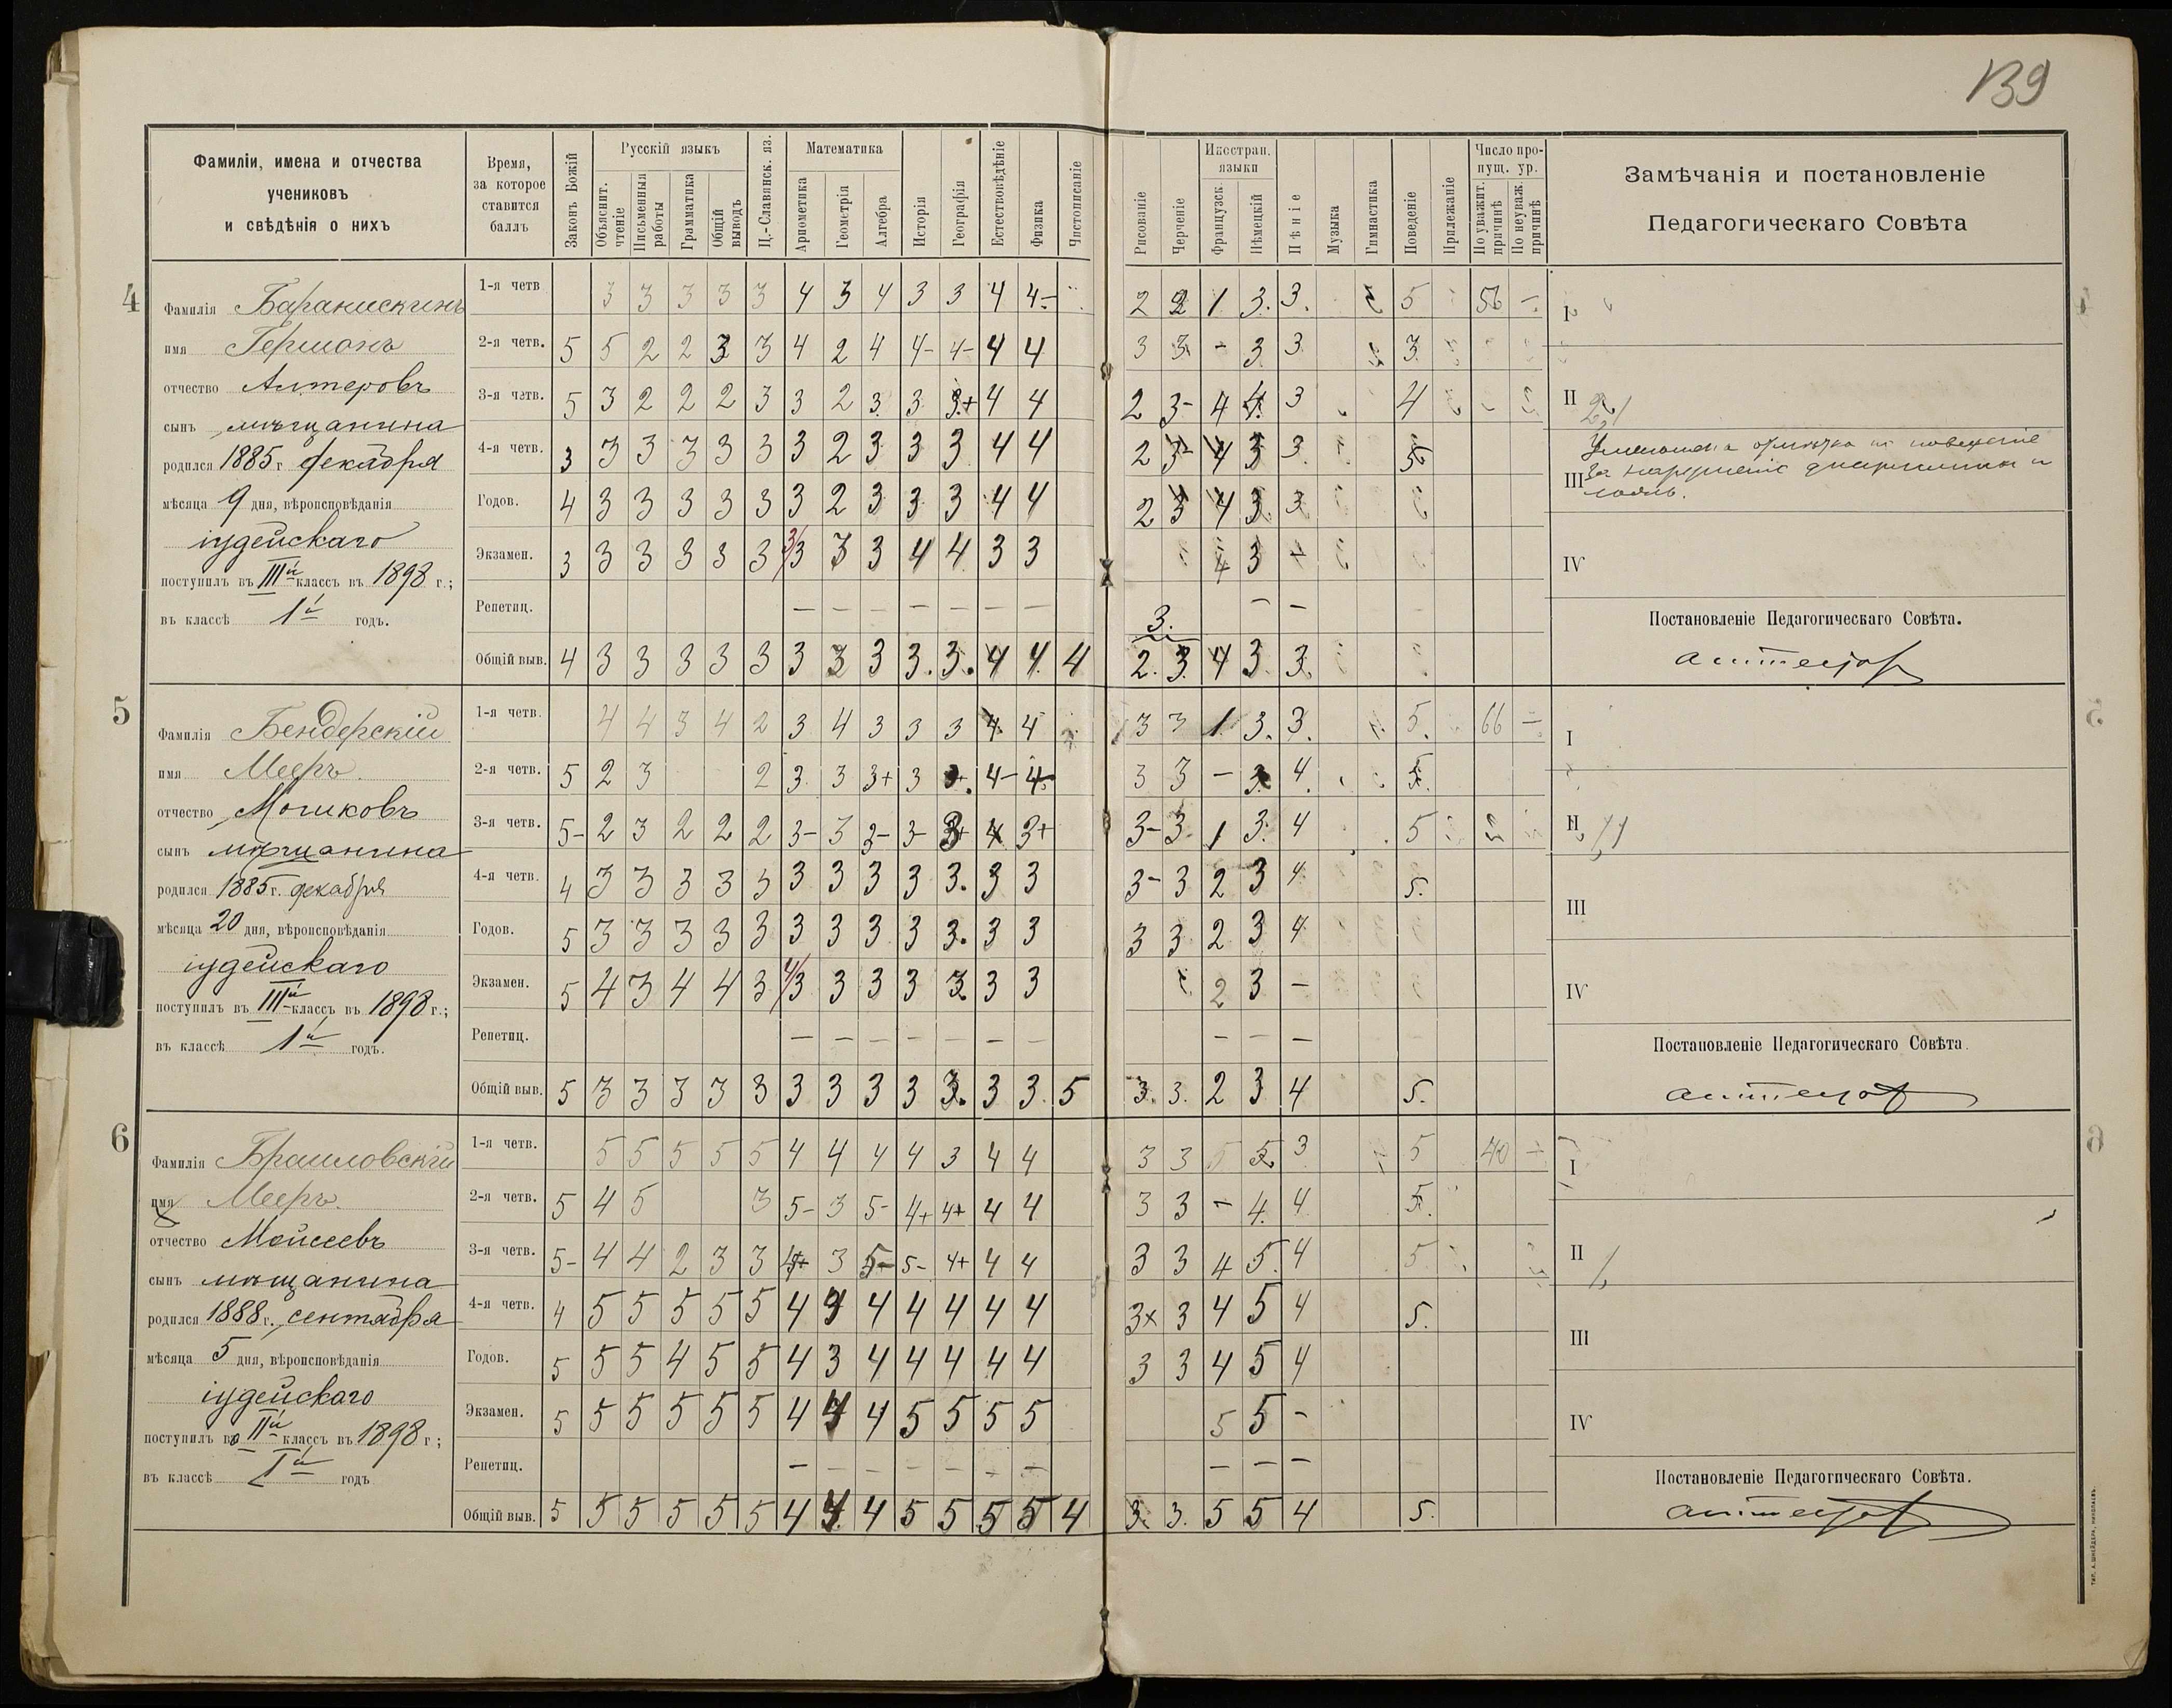 139
Фамиліи, имена и отчества
учениковъ
и свѣдѣнія о нихъ
Время,
за которое
ставится
баллъ
Законъ Божій
Русскій языкъ
Объяснит. чтеніе
Письменныя работы
Грамматика
Общій выводъ
Ц.-Славянск. яз.
Математика
Ариѳметика
Геометрія
Алгебра
Исторія
Географія
Естествовѣдѣніе
Физика
Чистописаніе
Рисованіе
Черченіе
Иностран. языки
Французск.
Нѣмецкій
Пѣніе
Музыка
Гимнастика
Поведеніе
Прилежаніе
Число пропущ. ур.
По уважит. причинѣ
По неуваж. причинѣ
Замѣчанія и постановленіе
Педагогическаго Совѣта
4
Фамилія Баранискинъ
имя Гершонъ
отчество Алтеровъ
сынъ мѣщанина
родился 1885 г. декабря
мѣсяца 9 дня, вѣроисповѣданія
іудейскаго
поступилъ въ IIIй классъ въ 1898 г.;
въ классѣ 1й годъ.
1-я четв. 3 3 3 3 3 4 3 4 3 3 4 4- 2 2 1 3. 3. 5 56 –
2-я четв. 5 5 2 2 3 3 4 2 4 4- 4- 4 4 3 3 – 3 3 3
3-я четв. 5 3 2 2 2 3 3 2 3 3 3+ 4 4 2 3- 4 4 3 4
4-я четв. 3 3 3 3 3 3 3 2 3 3 3 4 4 2 3- 4 3 3 5
Годов. 4 3 3 3 3 3 3 2 3 3 3 4 4 2 3 4 3 3
Экзамен. 3 3 3 3 3 3 3/3 3 3 4 4 3 3 4 3 –
Репетиц. – – – – – – – – –
3.
Общій выв. 4 3 3 3 3 3 3 3 3 3. 3. 4 4 4 2. 3. 4 3 3.
I
II
III
за нарушеніе дисциплины и
IV
Постановленіе Педагогическаго Совѣта.
5
Фамилія Бендерскій
имя Мееръ
отчество Мошковъ
сынъ мѣщанина
родился 1885 г. декабря
мѣсяца 20 дня, вѣроисповѣданія
іудейскаго
поступилъ въ IIIй классъ въ 1898 г.;
въ классѣ 1й годъ.
1-я четв. 4 4 3 4 2 3 4 3 3 3 4 4 3 3 1 3. 3. 5. 66 –
2-я четв. 5 2 3 2 3 3 3+ 3 3+ 4- 4- 3 3 – 3 4. 5.
3-я четв. 5- 2 3 2 2 2 3- 3 3- 3- 3+ 4 3+ 3- 3 1 3 4 5
4-я четв. 4 3 3 3 3 3 3 3 3 3 3. 3 3 3- 3 2 3 4 5.
Годов. 5 3 3 3 3 3 3 3 3 3 3. 3 3 3 3 2 3 4
Экзамен. 5 4 3 4 4 3 4/3 3 3 3 3. 3 3 2 3 –
Репетиц. – – – – – – – – – –
Общій выв. 5 3 3 3 3 3 3 3 3 3 3. 3 3 5 3. 3. 2 3 4 5.
I
II
III
IV
Постановленіе Педагогическаго Совѣта.
6
Фамилія Браиловскій
имя Мееръ
отчество Мойсеевъ
сынъ мѣщанина
родился 1888 г. сентября
мѣсяца 5 дня, вѣроисповѣданія
іудейскаго
поступилъ во IIй классъ въ 1898 г;
въ классѣ Iй годъ
1-я четв. 5 5 5 5 5 4 4 4 4 3 4 4 3 3 5 5 3 5 40 –
2-я четв. 5 4 5 3 5- 3 5- 4+ 4+ 4 4 3 3 – 4. 4 5.
3-я четв. 5- 4 4 2 3 3 4+ 3 5- 5- 4+ 4 4 3 3 4 5 4 5
4-я четв. 4 5 5 5 5 5 4 4 4 4 4 4 4 3× 3 4 5 4 5.
Годов. 5 5 5 4 5 5 4 3 4 4 4 4 4 3 3 4 5 4
Экзамен. 5 5 5 5 5 5 4 4 4 5 5 5 5 5 5 –
Репетиц. – – – – – – – – – –
Общій выв. 5 5 5 5 5 5 4 4 4 5 5 5 5 4 3. 3. 5 5 4 5.
I
II
III
IV
Постановленіе Педагогическаго Совѣта.